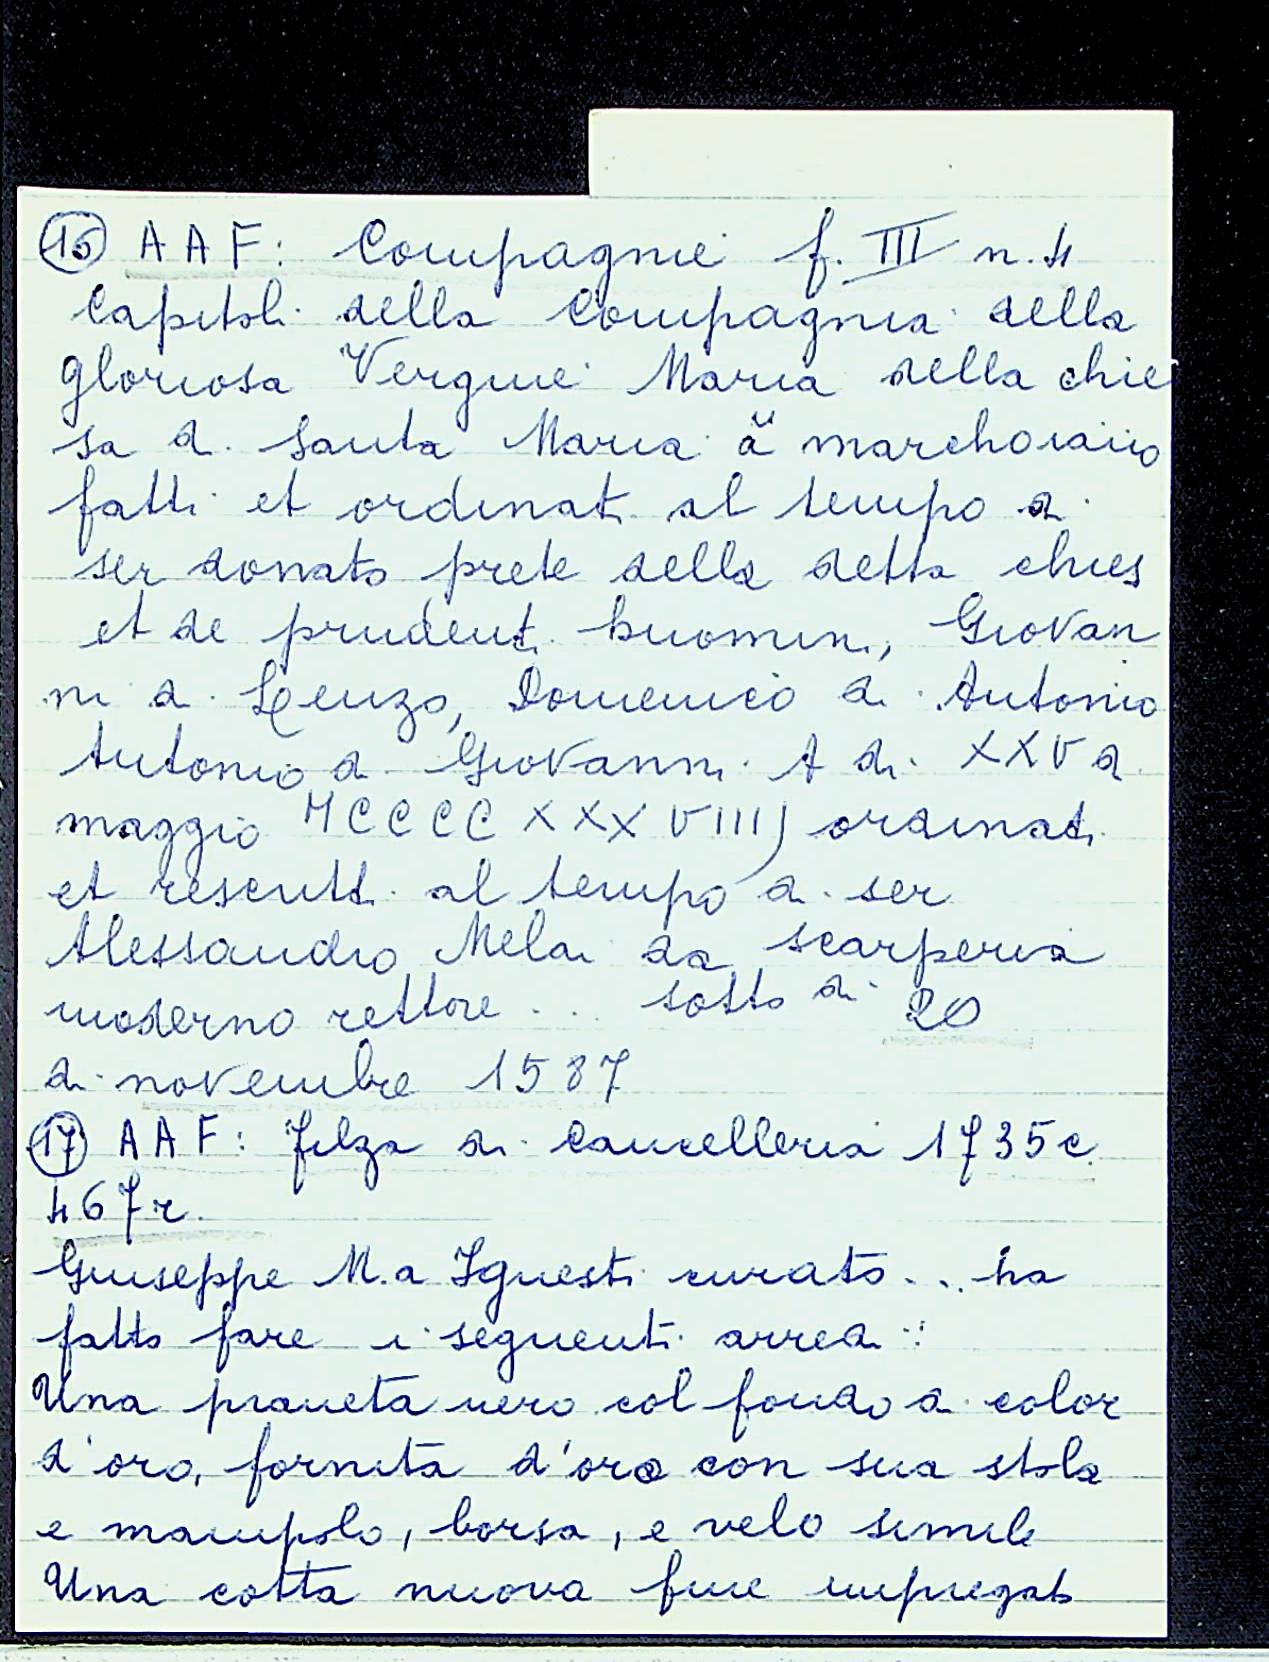 (16) AAF: Compagnie f. III n. 4
Capitoli della Compagnia della
gloriosa Vergine Maria della chie
sa di Santa Maria a
fatti et ordinati al tempo di
ser donato prete della detta chies
et de prudenti buomini, Giovan
ni di Lenzo, Domenico di Antonio
Antonio di Giovanni. A di XXV di
maggio MCCCCXXXVIIIJ ordinati
et al tempo di ser
Alessandro Melai da scarperia
moderno rettore ... sotto di 20
di novembre 1587
(17) AAF: Filza di Cancelleria 1735 c.
467r.
Giuseppe M.a Iguesti curato ... ha
fatto fare i seguenti arredi:
Una pianeta nero col fondo di color
d'oro, fornita d'oro con sua stola
e manipolo, borsa, e velo simile
Una cotta nuova fine